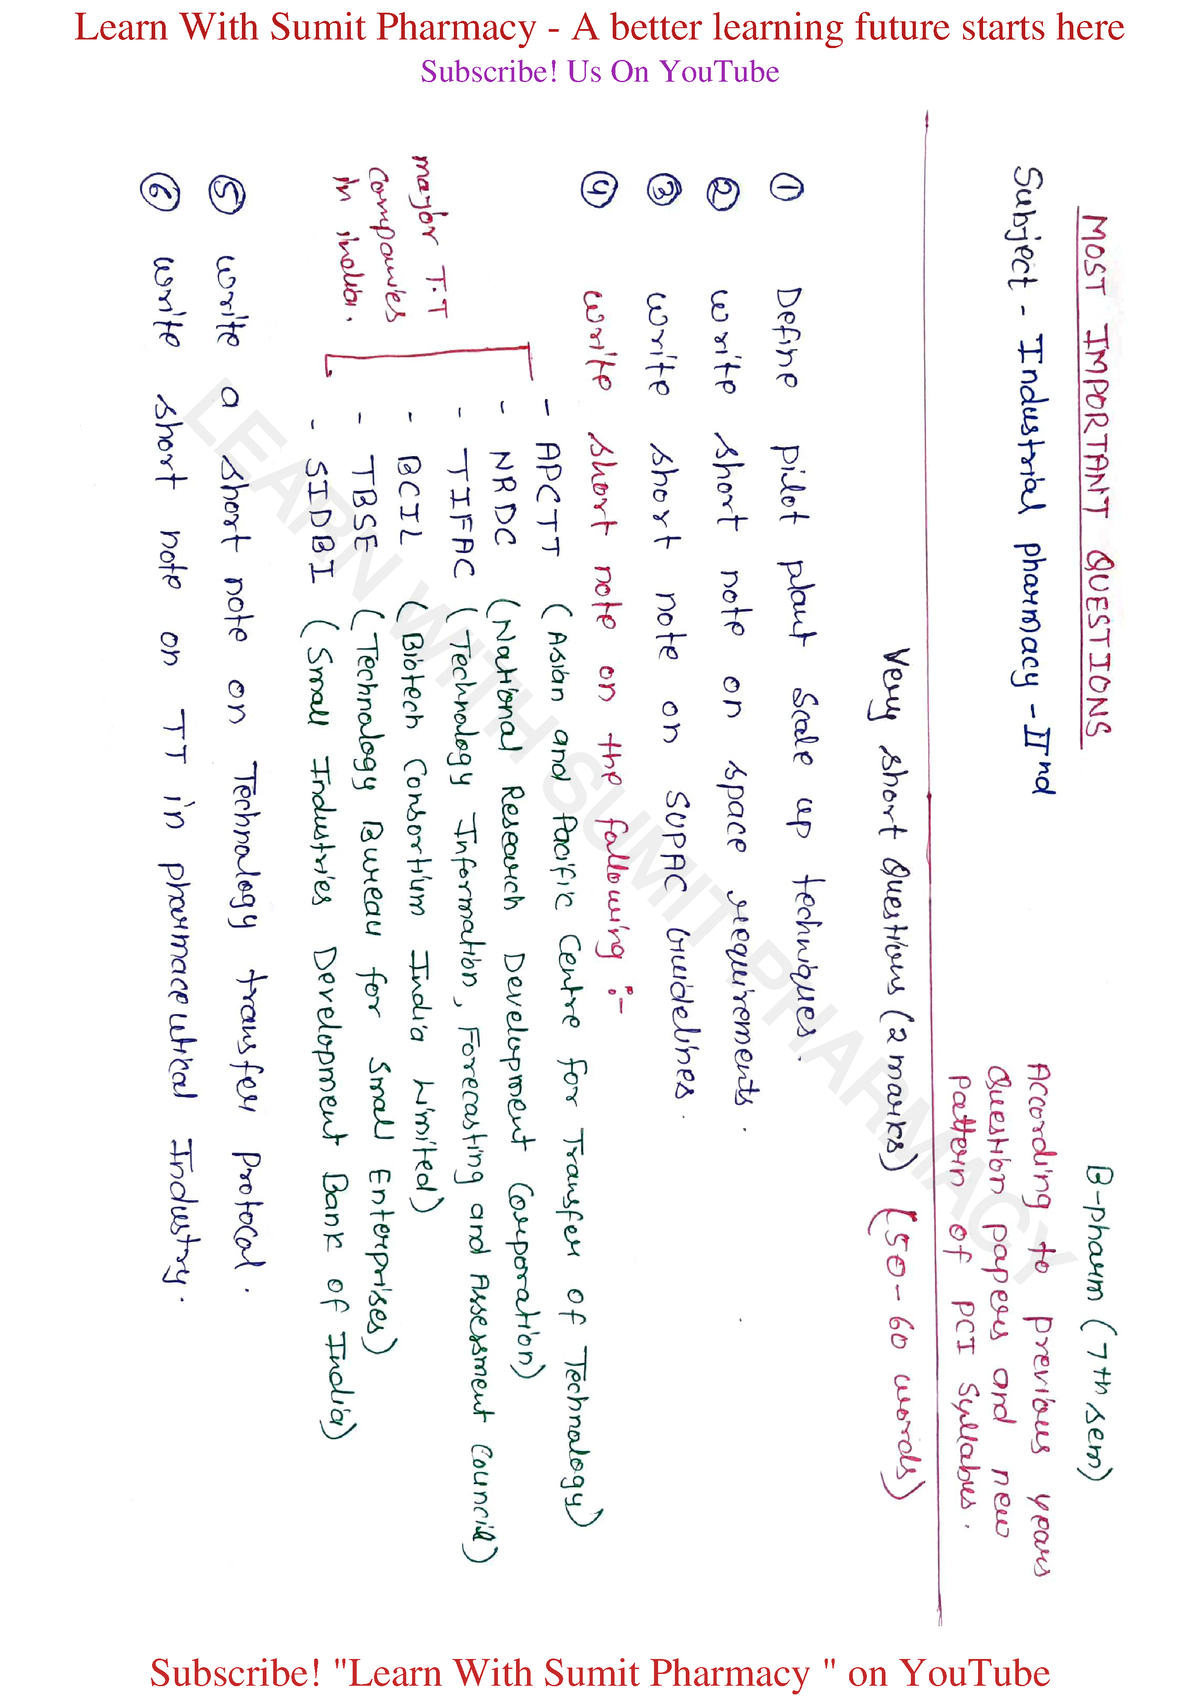 Learn With Sumit Pharmacy - A better learning future starts here
Subscribe! Us On YouTube
MOST IMPORTANT QUESTIONS
B-pharm (7th sem)
Subject - Industrial pharmacy - IInd
According to previous years
Question papers and new
Pattern of PCI Syllabus.
Very short Questions (2 marks) (50-60 words)
① Define pilot plant scale up techniques.
② write short note on space requirements.
③ write short note on SUPAC Guidelines.
④ write short note on the fallowing :-
major T.T
Companies
in india.
- APCTT (Asian and Pacific Centre for Transfer of Technology)
- NRDC (National Research Development Corporation)
- TIFAC (Technology Information, Forecasting and Assessment Council)
- BCIL (Biotech Consortium India Limited)
- TBSE (Technology Bureau for Small Enterprises)
- SIDBI (Small Industries Development Bank of India)
⑤ write a short note on Technology transfer protocal.
⑥ write short note on TT in pharmaceutical Industry.
LEARN WITH SUMIT PHARMACY
Subscribe! "Learn With Sumit Pharmacy " on YouTube